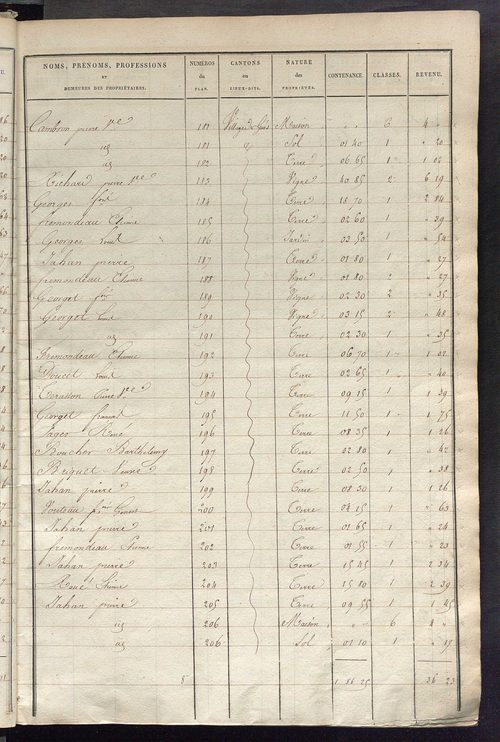 NOMS, PRÉNOMS, PROFESSIONS ET DEMEURES DES PROPRIÉTAIRES. NUMÉROS du PLAN. CANTONS ou LIEUX-DITS. NATURE des PROPRIÉTÉS. CONTENANCE. CLASSES. REVENU.
Cambron pierre 181 Village de Maison " " 6 4 "
id 181 Sol 01 40 1 " 20
id 182 Terre 06 65 1 1 02
Richard pierre 183 Vigne 40 85 2 6 19
Georges 184 Terre 18 70 1 2 84
fremondeau Etienne 185 Terre 02 60 1 " 39
Georges 186 Jardin 03 50 " 54
Jahan pierre 187 Terre 01 80 1 " 27
fremondeau Etienne 188 Vigne 01 80 2 " 27
Georget 189 Vigne 02 30 2 " 35
Georget 190 Vigne 03 15 2 " 48
id 191 Terre 02 30 1 " 35
Fremondeau Etienne 192 Terre 06 70 1 1 02
Doucet 193 Terre 02 65 1 " 40
194 Terre 09 15 1 1 39
Georget 195 Terre 11 50 1 1 75
Pager René 196 Terre 08 35 1 1 26
Boucher Barthelemy 197 Terre 02 80 1 " 42
198 Terre 02 50 1 " 38
Jahan pierre 199 Terre 08 30 1 1 26
200 Terre 04 15 1 " 63
Jahan pierre 201 Terre 01 65 1 " 24
fremondeau Etienne 202 Terre 01 55 1 " 23
Jahan pierre 203 Terre 15 45 1 2 34
René Etienne 204 Terre 15 80 1 2 39
Jahan pierre 205 Terre 09 55 1 1 45
id 206 Maison " " 6 4 "
id 206 Sol 01 10 1 " 15
1 86 25 36 23